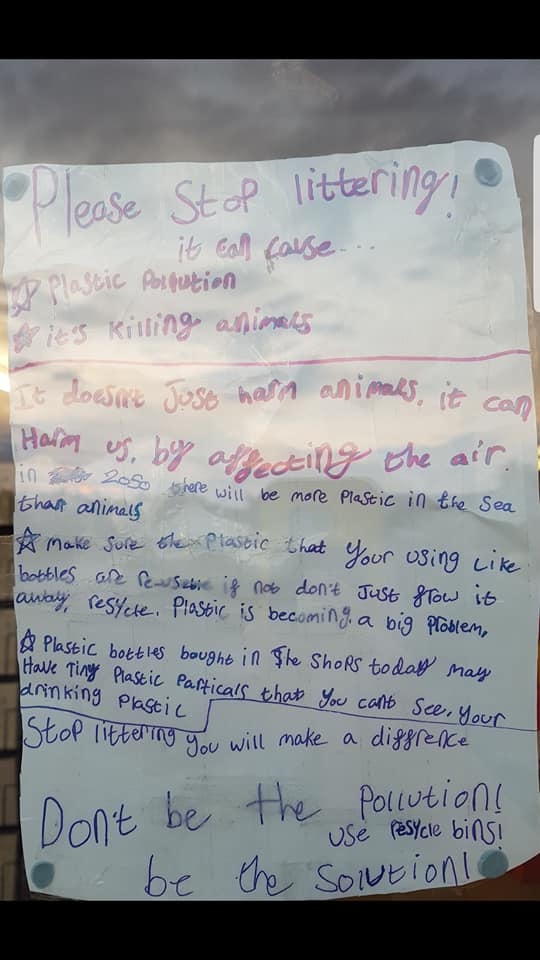 Please Stop littering!
it can cause...
Plastic Pollution
it's killing animals
It doesn't Just harm animals, it can
Harm us, by affecting the air.
in 2050 there will be more Plastic in the Sea
than animals
make sure the Plastic that your using Like
bottles are re-usable if not don't Just frow it
away, resycle. Plastic is becoming a big Problem,
Plastic bottles bought in the shops today may
Have Tiny Plastic Particals that you can't see, your
drinking Plastic
Stop littering you will make a diffrence
Don't be the Pollution!
use resycle bins!
be the solution!